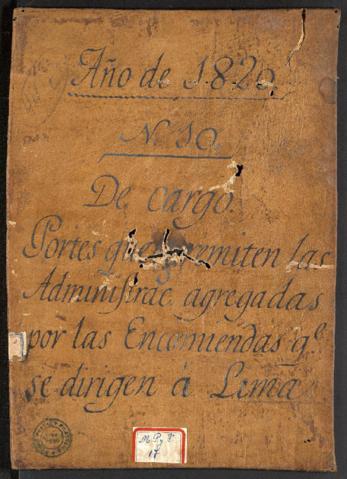 Año de 1820
Nº 10.
De cargo.
Portes que remiten las
Administrac. agregadas
por las Encomiendas q.e
se dirigen á Lima
17